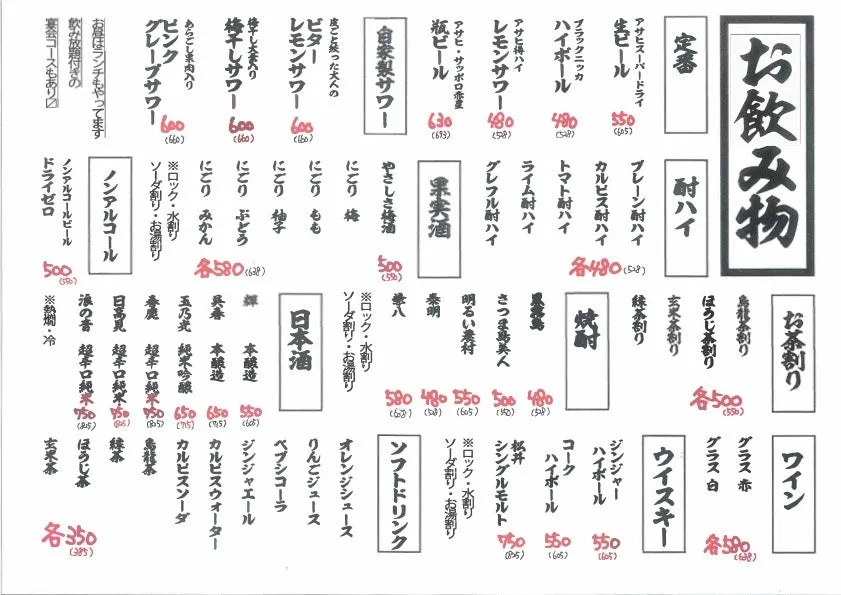 お飲み物
定番
アサヒスーパードライ
生ビール
550
(605)
ブラックニッカ
ハイボール
480
(528)
アサヒ樽ハイ
レモンサワー
480
(528)
アサヒ・サッポロ赤星
瓶ビール
630
(693)
自家製サワー
皮ごと搾った大人の
ビター
レモンサワー
600
(660)
梅干し丸ごと入り
梅干しサワー
600
(660)
あらごし果肉入り
ピンク
グレープサワー
600
(660)
お昼はランチもやってます
飲み放題付きの
宴会コースもあり〼
酎ハイ
プレーン酎ハイ
カルピス酎ハイ
トマト酎ハイ
ライム酎ハイ
グレフル酎ハイ
各480(528)
果実酒
やさしさ梅酒
500
(550)
にごり 梅
にごり もも
にごり 柚子
にごり ぶどう
にごり みかん
各580(638)
※ロック・水割り
ソーダ割り・お湯割り
ノンアルコール
ノンアルコールビール
ドライゼロ
500
(550)
お茶割り
烏龍茶割り
ほうじ茶割り
玄米茶割り
緑茶割り
各500
(550)
焼酎
黒霧島
480
(528)
さつま島美人
500
(550)
明るい農村
550
(605)
泰明
480
(528)
華八
580
(638)
※ロック・水割り
ソーダ割り・お湯割り
日本酒
輝 本醸造
550
(605)
呉春 本醸造
650
(715)
玉乃光 純米吟醸
650
(715)
春鹿 超辛口純米
750
(825)
日高見 超辛口純米
750
(825)
浪の音 超辛口純米
750
(825)
※熱燗・冷
ワイン
グラス 赤
グラス 白
各580
(638)
ウイスキー
ジンジャー
ハイボール
550
(605)
コーク
ハイボール
550
(605)
松井
シングルモルト
750
(825)
※ロック・水割り
ソーダ割り・お湯割り
ソフトドリンク
オレンジジュース
りんごジュース
ペプシコーラ
ジンジャエール
カルピスウォーター
カルピスソーダ
烏龍茶
緑茶
ほうじ茶
玄米茶
各350
(385)